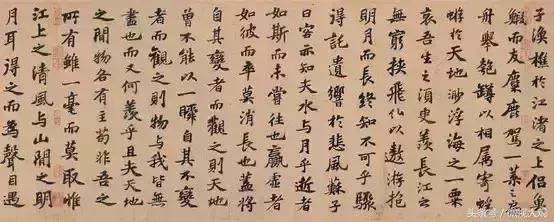 子漁樵於江渚之上侶魚
鰕而友麋鹿駕一葉之扁
舟舉匏罇以相属寄蜉
蝣於天地渺浮海之一粟
哀吾生之須臾羨長江之
無窮挾飛仙以遨游抱
明月而長終知不可乎驟
得託遺響於悲風蘇子
曰客亦知夫水與月乎逝者
如斯而未嘗往也贏虛者
如彼而卒莫消長也蓋將
自其變者而觀之則天地
曾不能以一瞬自其不變
者而觀之則物與我皆無
盡也而又何羨乎且夫天地
之間物各有主苟非吾之
所有雖一毫而莫取惟
江上之清風與山間之明
月耳得之而為聲目遇
头条号